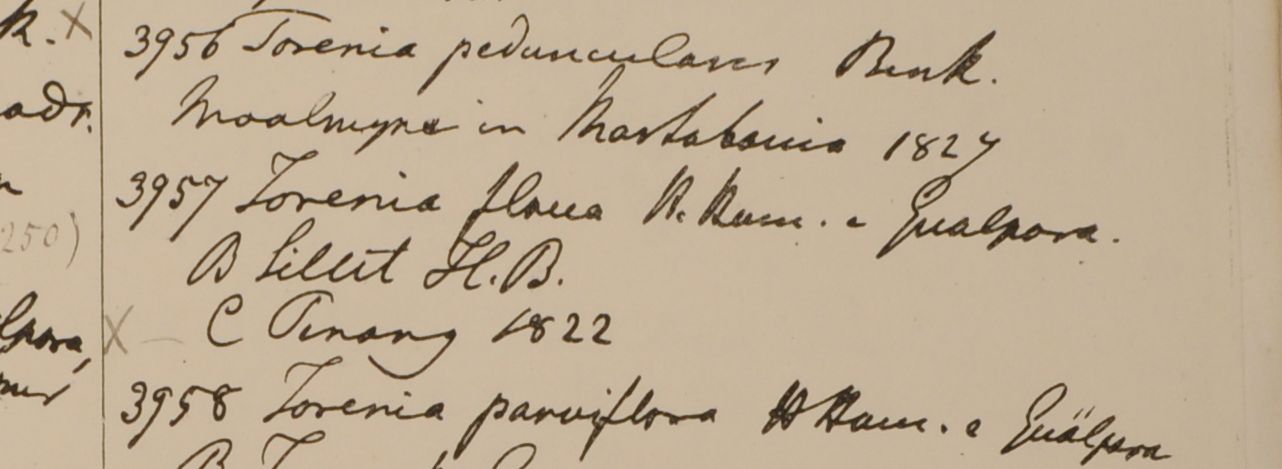 k. X
3956 Torenia peduncularis Benth.
adr.
Moalmyne in Martabania 1827
3957 Torenia flava H. Ham. e Gualpara.
250)
B Sillet H.B.
lpara,
X — C Penang 1822
3958 Torenia parviflora H Ham. e Guälpara
B